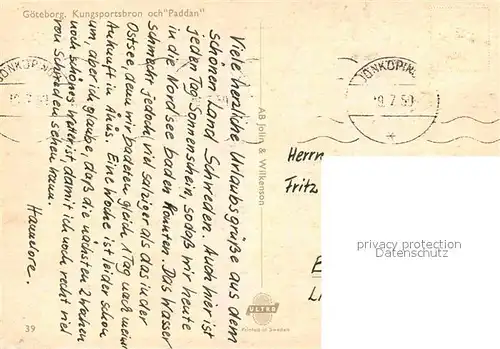 Göteborg. Kungsportsbron och "Paddan"
Viele herzliche Urlaubsgrüße aus dem
schönen Land Schweden. Auch hier ist
jeden Tag Sonnenschein, sodaß wir heute
in die Nordsee baden konnten. Das Wasser
schmeckt jedoch viel salziger als das in der
Ostsee, denn wir badeten gleich 1 Tag nach meiner
Ankunft in Åhus. Eine Woche ist leider schon
um, aber ich glaube, daß die nächsten 2 Wochen
noch schönes Wetter ist, damit ich noch recht viel
von Schweden sehen kann.
Hannelore.
JÖNKÖPING
JÖNKÖPING
9.7.59
AB Jolin & Wilkenson
Herrn
Fritz
privacy protection
©ansichtskarten-center.de
ULTRA
Printed in Sweden
39